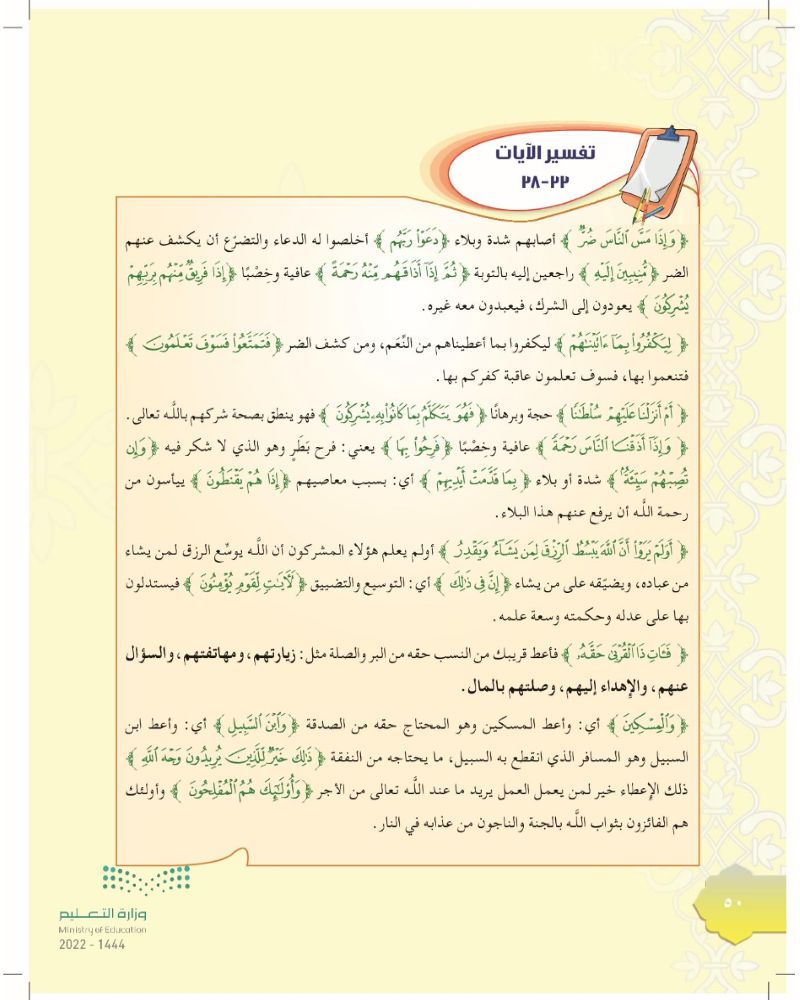 تفسير الآيات
٢٢-٢٨
﴿ وَإِذَا مَسَّ ٱلنَّاسَ ضُرٌّ ﴾ أصابهم شدة وبلاء ﴿ دَعَوْا۟ رَبَّهُم ﴾ أخلصوا له الدعاء والتضرّع أن يكشف عنهم
الضر ﴿ مُّنِيبِينَ إِلَيْهِ ﴾ راجعين إليه بالتوبة ﴿ ثُمَّ إِذَآ أَذَاقَهُم مِّنْهُ رَحْمَةً ﴾ عافية وخِصْبًا ﴿ إِذَا فَرِيقٌ مِّنْهُم بِرَبِّهِمْ
يُشْرِكُونَ ﴾ يعودون إلى الشرك، فيعبدون معه غيره.
﴿ لِيَكْفُرُوا۟ بِمَآ ءَاتَيْنَٰهُمْ ﴾ ليكفروا بما أعطيناهم من النِّعَم، ومن كشف الضر ﴿ فَتَمَتَّعُوا۟ فَسَوْفَ تَعْلَمُونَ ﴾
فتنعموا بها، فسوف تعلمون عاقبة كفركم بها.
﴿ أَمْ أَنزَلْنَا عَلَيْهِمْ سُلْطَٰنًا ﴾ حجة وبرهانًا ﴿ فَهُوَ يَتَكَلَّمُ بِمَا كَانُوا۟ بِهِۦ يُشْرِكُونَ ﴾ فهو ينطق بصحة شركهم باللَّه تعالى.
﴿ وَإِذَآ أَذَقْنَا ٱلنَّاسَ رَحْمَةً ﴾ عافية وخِصْبًا ﴿ فَرِحُوا۟ بِهَا ﴾ يعني: فرح بَطَرٍ وهو الذي لا شكر فيه ﴿ وَإِن
تُصِبْهُمْ سَيِّئَةٌۢ ﴾ شدة أو بلاء ﴿ بِمَا قَدَّمَتْ أَيْدِيهِمْ ﴾ أي: بسبب معاصيهم ﴿ إِذَا هُمْ يَقْنَطُونَ ﴾ ييأسون من
رحمة اللَّه أن يرفع عنهم هذا البلاء.
﴿ أَوَلَمْ يَرَوْا۟ أَنَّ ٱللَّهَ يَبْسُطُ ٱلرِّزْقَ لِمَن يَشَآءُ وَيَقْدِرُ ﴾ أولم يعلم هؤلاء المشركون أن اللَّه يوسِّع الرزق لمن يشاء
من عباده، ويضيّقه على من يشاء ﴿ إِنَّ فِى ذَٰلِكَ ﴾ أي: التوسيع والتضييق ﴿ لَءَايَٰتٍ لِّقَوْمٍ يُؤْمِنُونَ ﴾ فيستدلون
بها على عدله وحكمته وسعة علمه.
﴿ فَـَٔاتِ ذَا ٱلْقُرْبَىٰ حَقَّهُۥ ﴾ فأعط قريبك من النسب حقه من البر والصلة مثل: زيارتهم، ومهاتفتهم، والسؤال
عنهم، والإهداء إليهم، وصلتهم بالمال.
﴿ وَٱلْمِسْكِينَ ﴾ أي: وأعط المسكين وهو المحتاج حقه من الصدقة ﴿ وَٱبْنَ ٱلسَّبِيلِ ﴾ أي: وأعط ابن
السبيل وهو المسافر الذي انقطع به السبيل، ما يحتاجه من النفقة ﴿ ذَٰلِكَ خَيْرٌ لِّلَّذِينَ يُرِيدُونَ وَجْهَ ٱللَّهِ ﴾
ذلك الإعطاء خير لمن يعمل العمل يريد ما عند اللَّه تعالى من الأجر ﴿ وَأُو۟لَٰٓئِكَ هُمُ ٱلْمُفْلِحُونَ ﴾ وأولئك
هم الفائزون بثواب اللَّه بالجنة والناجون من عذابه في النار.
٥٠
وزارة التعـليم
Ministry of Education
2022 - 1444